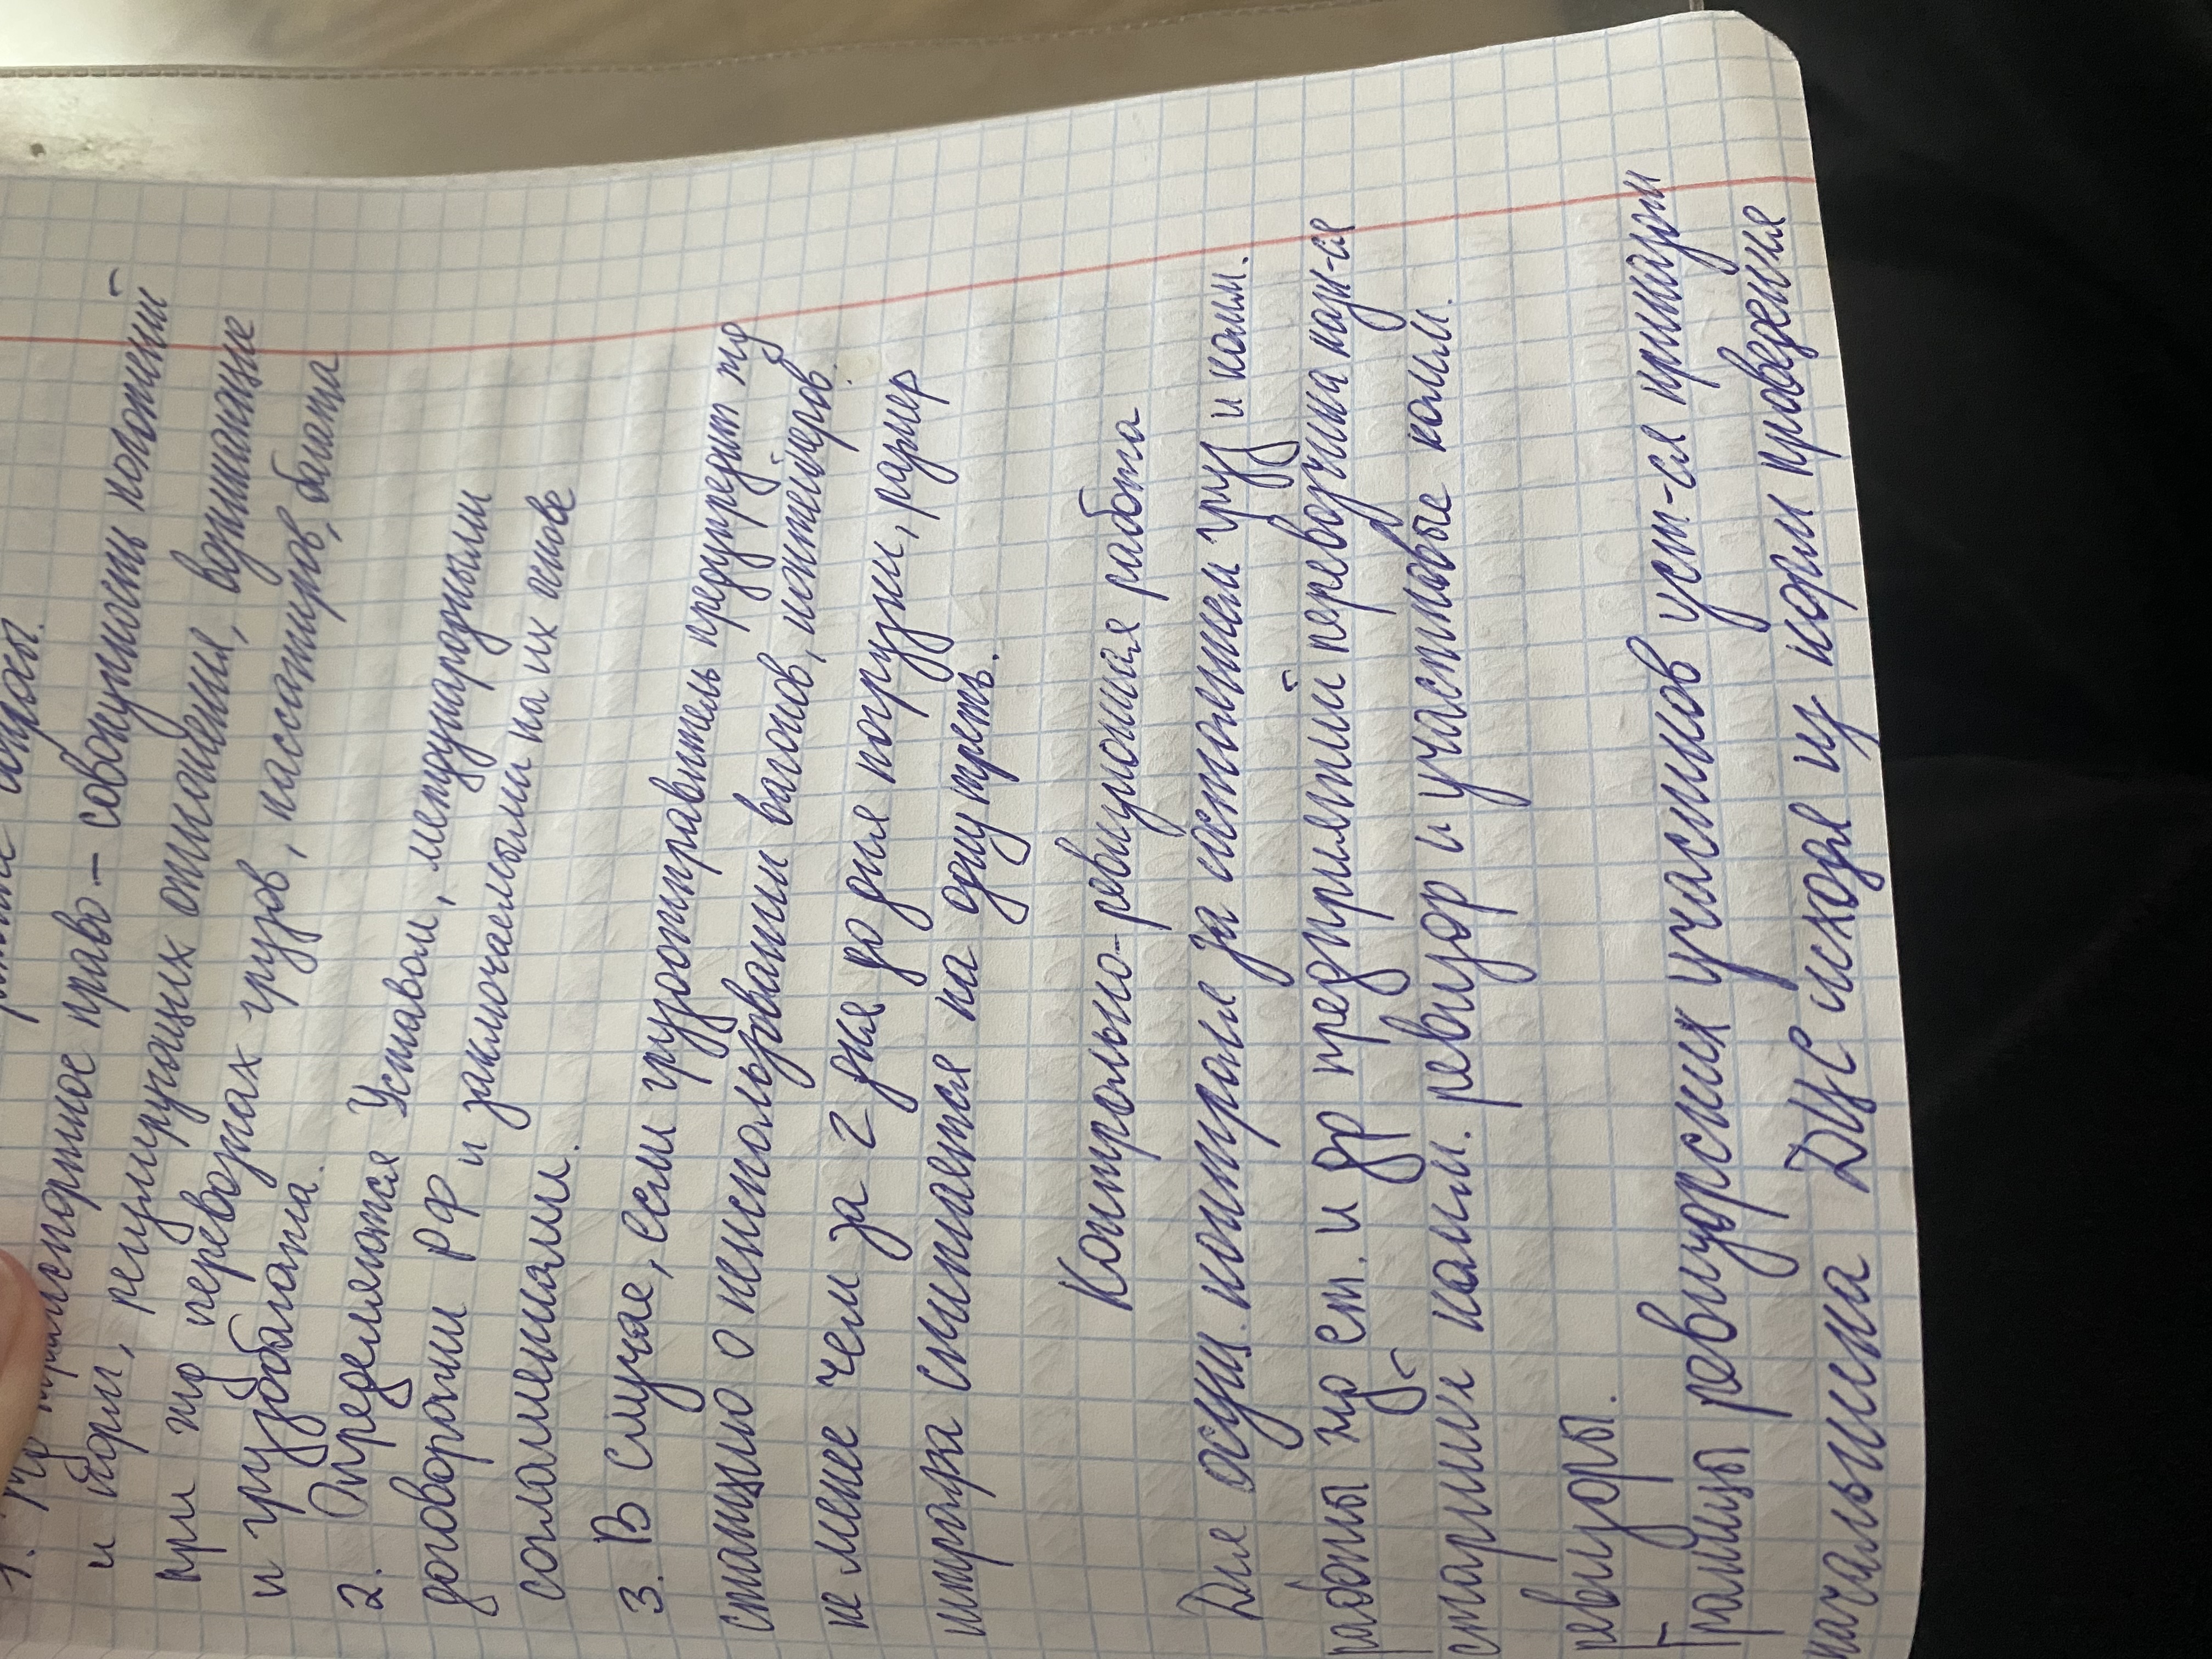 вопросы.
1. жд транспортное право – совокупность положений
и норм, регулирующих отношения, возникающие
при жд перевозках грузов, пассажиров, багажа
и грузобагажа.
2. Определяются Уставом, международными
договорами РФ и заключаемыми на их основе
соглашениями.
3. В случае, если грузоотправитель предупредит жд
станцию о неиспользовании вагонов, контейнеров
не менее чем за 2 дня до дня погрузки, размер
штрафа снижается на одну треть.
Контрольно-ревизионная работа
Для осущ. контроля за состоянием груз и комм.
работы жд ст. и др предприятий перевозчика назн-ся
старшие комм. ревизор и участковые комм.
ревизоры.
Границы ревизорских участков уст-ся приказом
начальника ДЦС исходя из норм проведения